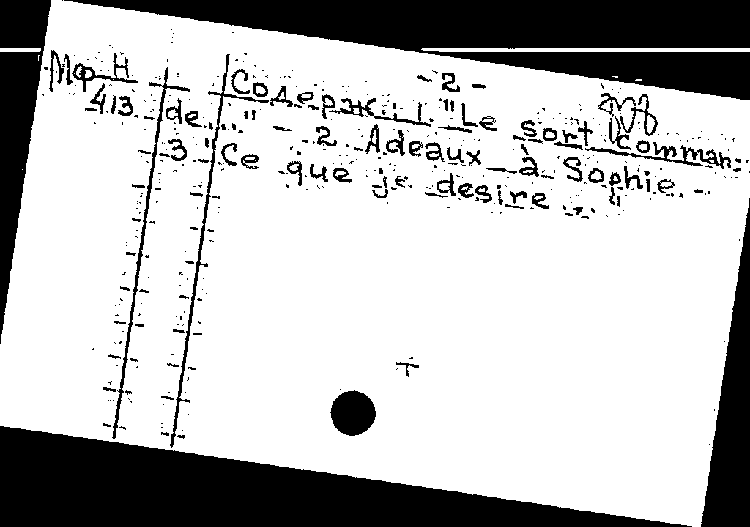 - 2 -
Мф Н
413
Содерж.: 1. "Le sort comman-
de..." - 2. Adeaux à Sophie. -
3 "Ce que je desire ..."